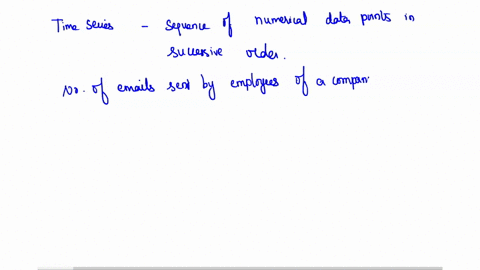 Time series - sequence of numerical data points in
successive order.
No. of emails sent by employees of a compan